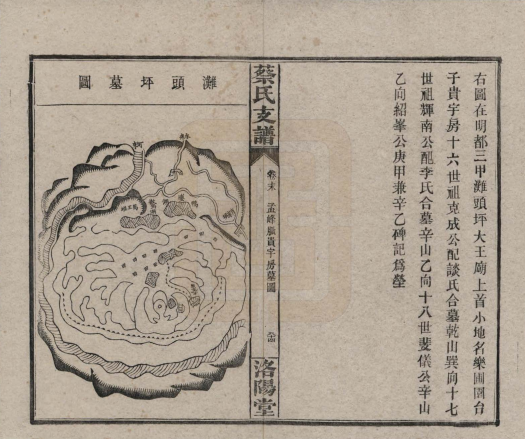 右圖在明都三甲灘頭坪大王廟上首小地名樂圃園台
子貴宇房十六世祖克成公配談氏合墓乾山巽向十七
世祖輝南公配李氏合墓辛山乙向十八世斐儀公辛山
乙向紹峯公庚甲兼辛乙碑記爲塋
蔡氏支譜
卷末
孟綘顯貴宇房墓圖
洛陽堂
灘頭坪墓圖